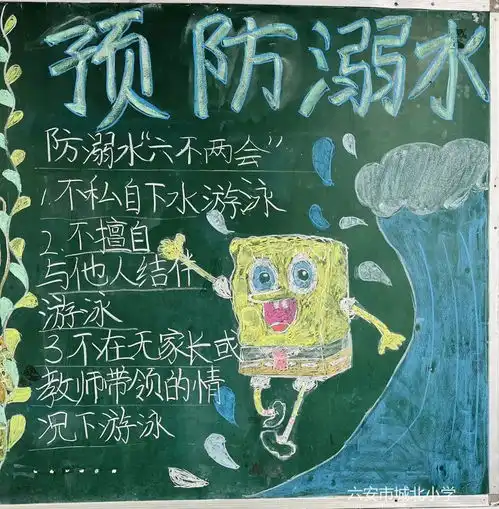 预防溺水
防溺水“六不两会”
1.不私自下水游泳
2.不擅自
与他人结伴
游泳
3.不在无家长或
教师带领的情
况下游泳
六安市城北小学